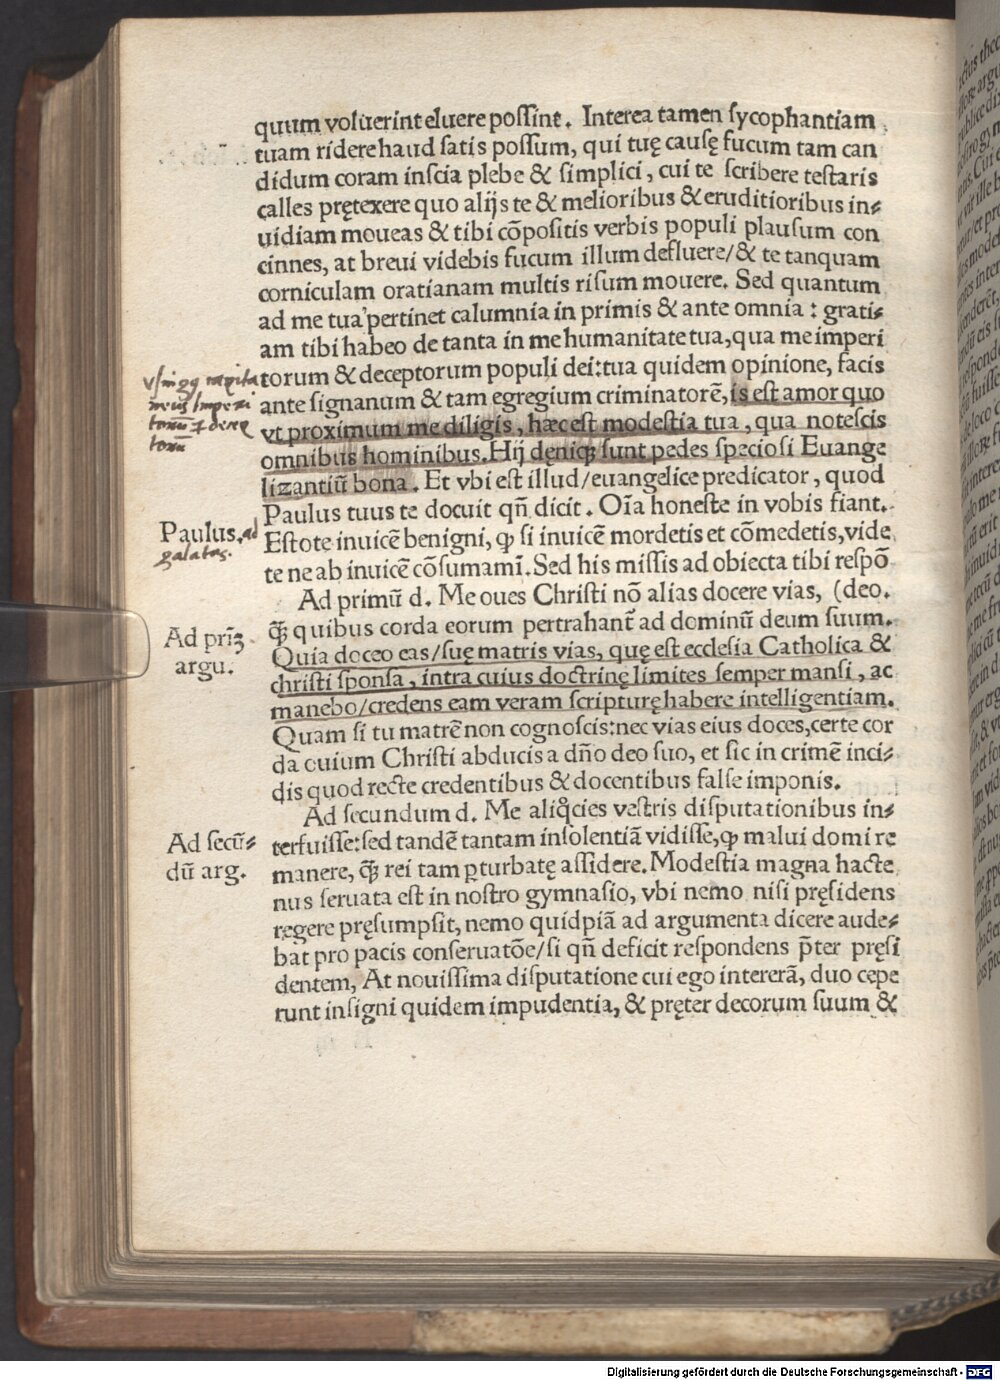 quum voluerint eluere possint. Interea tamen sycophantiam
tuam ridere haud satis possum, qui tuę causę fucum tam can
didum coram inscia plebe & simplici, cui te scribere testaris
calles prętexere quo alijs te & melioribus & eruditioribus in⸗
uidiam moueas & tibi cōpositis verbis populi plausum con
cinnes, at breui videbis fucum illum defluere/& te tanquam
corniculam oratianam multis risum mouere. Sed quantum
ad me tua pertinet calumnia in primis & ante omnia : grati⸗
am tibi habeo de tanta in me humanitate tua, qua me imperi
torum & deceptorum populi dei:tua quidem opinione, facis
ante signanum & tam egregium criminatorē, is est amor quo
vt proximum me diligis, hæc est modestia tua, qua notescis
omnibus hominibus. Hij dęniqꝫ sunt pedes speciosi Euange
lizantiū bona. Et vbi est illud/euangelice predicator, quod
Paulus tuus te docuit qn̄ dicit. Oīa honeste in vobis fiant.
Estote inuicē benigni, ꝙ si inuicē mordetis et cōmedetis, vide
te ne ab inuicē cōsumamī. Sed his missis ad obiecta tibi respō
Ad primū d. Me oues Christi nō alias docere vias, (deo.
ꝙ̄ quibus corda eorum pertrahant̄ ad dominū deum suum.
Quia doceo eas/suę matris vias, quę est ecclesia Catholica &
christi sponsa, intra cuius doctrinę limites semper mansi, ac
manebo/credens eam veram scripturę habere intelligentiam.
Quam si tu matrē non cognoscis:nec vias eius doces, certe cor
da ouium Christi abducis a dn̄o deo suo, et sic in crimē inci⸗
dis quod recte credentibus & docentibus false imponis.
Ad secundum d. Me aliq̊cies vestris disputationibus in⸗
terfuisse:sed tandē tantam insolentiā vidisse, ꝙ malui domi re
manere, ꝙ̄ rei tam ꝑturbatę assidere. Modestia magna hacte
nus seruata est in nostro gymnasio, vbi nemo nisi pręsidens
regere pręsumpsit, nemo quidpiā ad argumenta dicere aude⸗
bat pro pacis conseruatōe/si qn̄ deficit respondens p̄ter pręsi
dentem, At nouissima disputatione cui ego intererā, duo cępe
runt insigni quidem impudentia, & pręter decorum suum &
meus Imperi
Paulus. ad
galatas.
Ad prīꝫ
argu.
Ad secū⸗
dū arg.
Digitalisierung gefördert durch die Deutsche Forschungsgemeinschaft - DFG